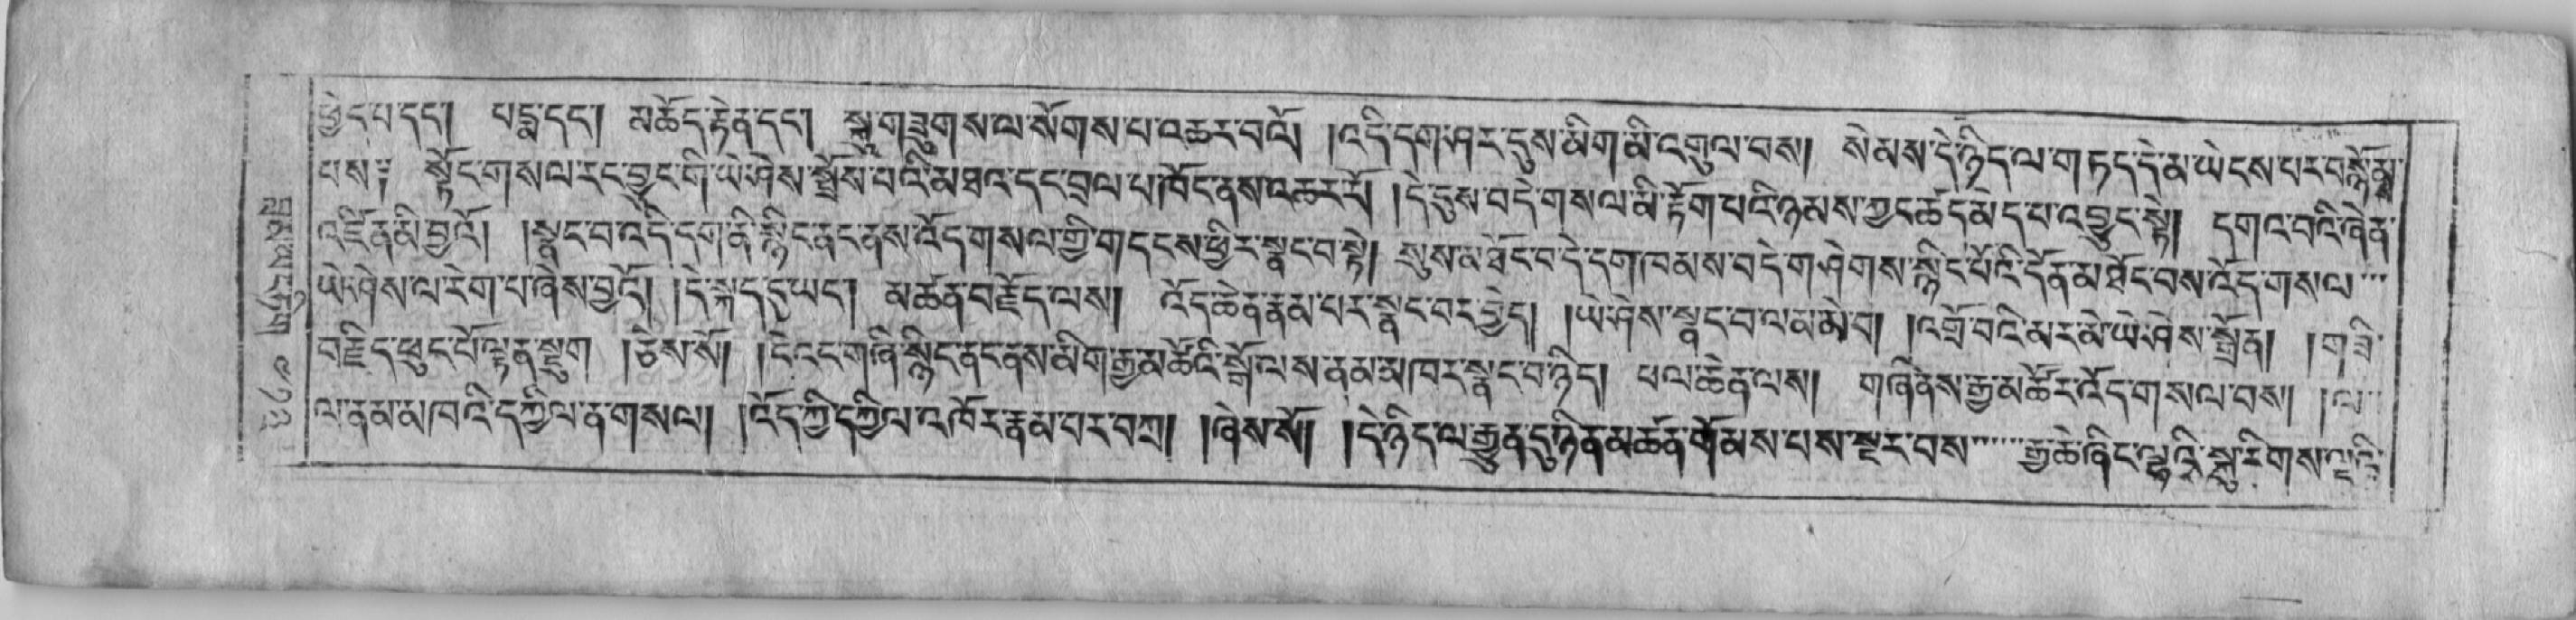 ཕྱེད་པ་དང་། པདྨ་དང་། མཆོད་རྟེན་དང་། སྐུ་གཟུགས་ལ་སོགས་པ་འཆར་བའོ། །འདི་དག་ཤར་དུས་མིག་མི་འགུལ་བས། སེམས་དེ་ཉིད་ལ་གཏད་དེ་མ་ཡེངས་པར་བསྒོམ་
པས༔ སྟོང་གསལ་རང་བྱུང་གི་ཡེ་ཤེས་སྤྲོས་པའི་མཐའ་དང་བྲལ་པ་ཁོང་ནས་འཆར་རོ། །དེ་དུས་བདེ་གསལ་མི་རྟོག་པའི་ཉམས་ཀྱང་ཚད་མེད་པ་འབྱུང་སྟེ། དགའ་བའི་ཞེན་
འཛིན་མི་བྱའོ། །སྣང་བ་འདི་དག་ནི་སྙིང་ནང་ནས་འོད་གསལ་གྱི་གདངས་ཕྱིར་སྣང་བ་སྟེ། སུས་མཐོང་བ་དེ་དག་ཁམས་བདེ་གཤེགས་སྙིང་པོའི་དོན་མཐོང་བས་འོད་གསལ་
ཡེ་ཤེས་ལ་རེག་པ་ཞེས་བྱའོ། །དེ་སྐད་དུ་ཡང་། མཚན་བརྗོད་ལས། འོད་ཆེན་རྣམ་པར་སྣང་བར་བྱེད། །ཡེ་ཤེས་སྣང་བ་ལམ་མེ་བ། །འགྲོ་བའི་མར་མེ་ཡེ་ཤེས་སྒྲོན། །གཟི་
བརྗིད་ཕུང་པོ་ལྟ་ན་སྡུག །ཅེས་སོ། །དེ་འང་གཞི་སྙིང་ནང་ནས་མིག་རྒྱ་མཚོའི་སྒོ་ལས་ནམ་མཁར་སྣང་བ་ཉིད། ཕལ་ཆེན་ལས། གཞི་ནས་རྒྱ་མཚོར་འོད་གསལ་བས། །ལ་
ལ་ནམ་མཁའི་དཀྱིལ་ན་གསལ། །འོད་ཀྱི་དཀྱིལ་འཁོར་རྣམ་པར་བཀྲ། །ཞེས་སོ། །དེ་ཉིད་ལ་རྒྱུན་དུ་ཉིན་མཚན་གོམས་པས་སྔར་བས་རྒྱ་ཆེ་ཞིང་ལྷའི་སྐུ་རིགས་ལྔའི་